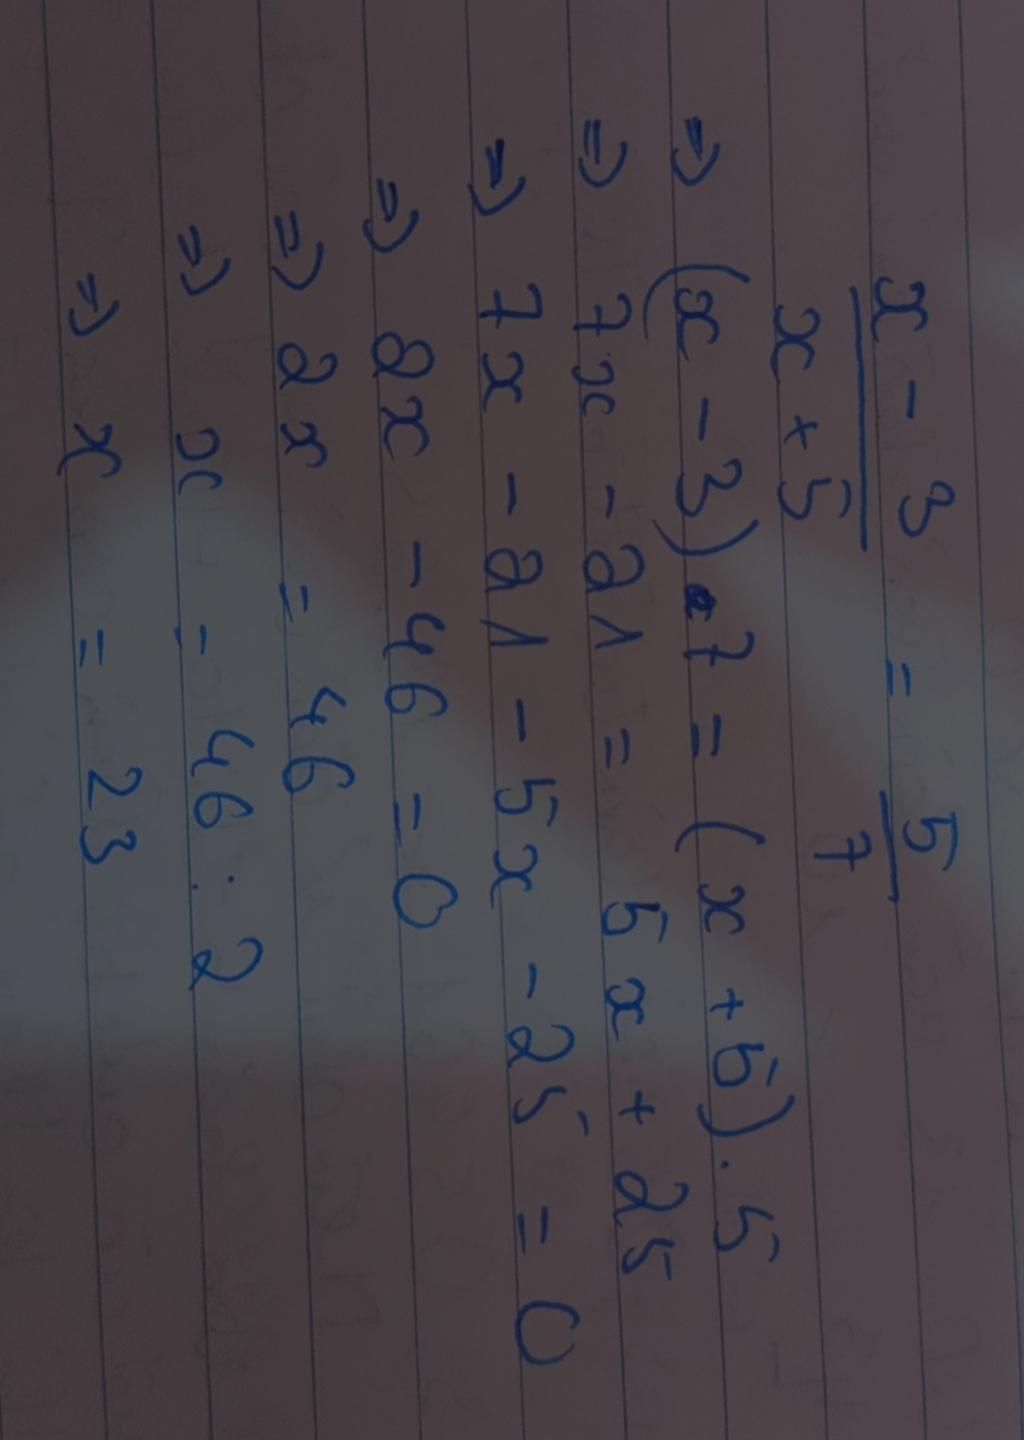 x - 3 / x + 5 = 5 / 7
=> (x - 3) . 7 = (x + 5) . 5
=> 7x - 21 = 5x + 25
=> 7x - 21 - 5x - 25 = 0
=> 2x - 46 = 0
=> 2x = 46
=> x = 46 : 2
=> x = 23